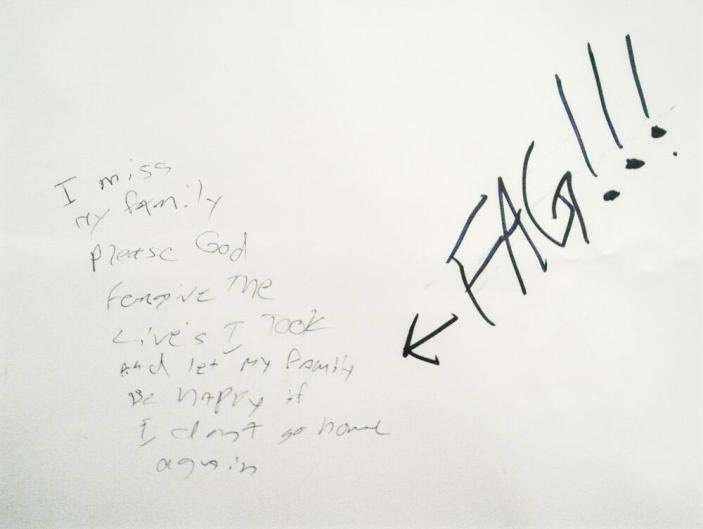 I miss
My family
please God
forgive The
Live's I Took
And let My family
Be happy if
I don't go home
again
← FAG!!!